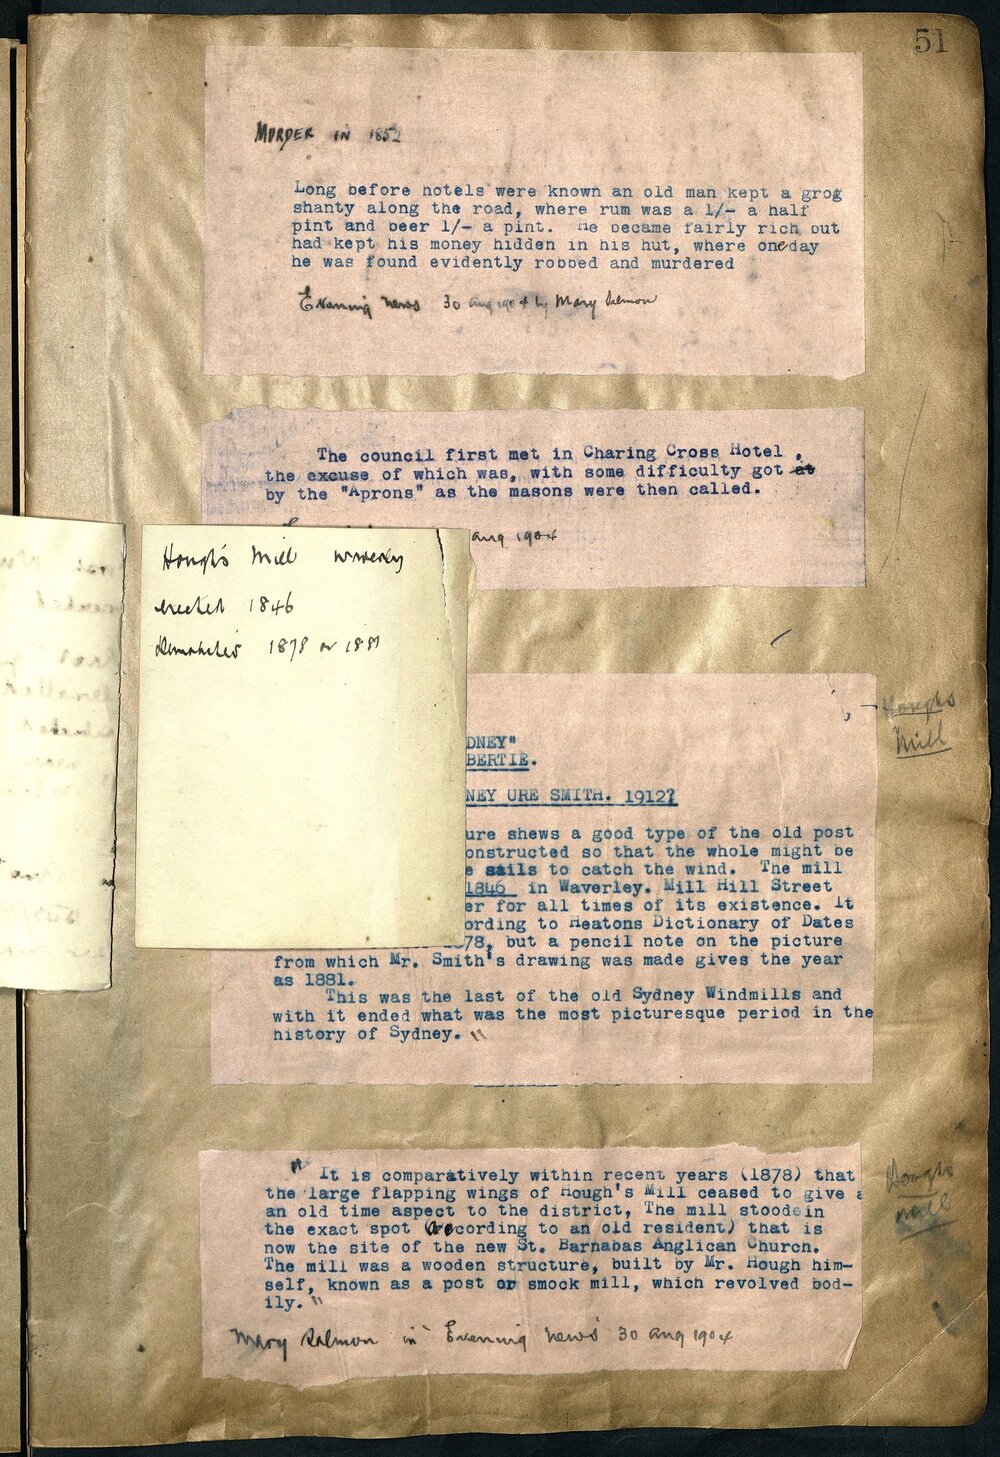 51
MURDER IN 1852
Long before hotels were known an old man kept a grog
shanty along the road, where rum was a 1/- a half
pint and beer 1/- a pint. He became fairly rich but
had kept his money hidden in his hut, where oneday
he was found evidently robbed and murdered
Evening News 30 Aug 1904 by Mary Salmon
The council first met in Charing Cross Hotel,
the excuse of which was, with some difficulty got at
by the "Aprons" as the masons were then called.
Aug 1904
Hough's Mill Waverley
erected 1846
Demolished 1878 or 1881
Hough's
Mill
DNEY"
BERTIE.
NEY URE SMITH. 1912?
ure shews a good type of the old post
onstructed so that the whole might be
e sails to catch the wind. The mill
1846 in Waverley. Mill Hill Street
er for all times of its existence. It
ording to Heatons Dictionary of Dates
878, but a pencil note on the picture
from which Mr. Smith's drawing was made gives the year
as 1881.
This was the last of the old Sydney Windmills and
with it ended what was the most picturesque period in the
history of Sydney."
Hough's
Mill
"It is comparatively within recent years (1878) that
the large flapping wings of Hough's Mill ceased to give a
an old time aspect to the district, The mill stoodein
the exact spot (according to an old resident) that is
now the site of the new St. Barnabas Anglican Church.
The mill was a wooden structure, built by Mr. Hough him-
self, known as a post or smock mill, which revolved bod-
ily."
Mary Salmon in "Evening News" 30 Aug 1904